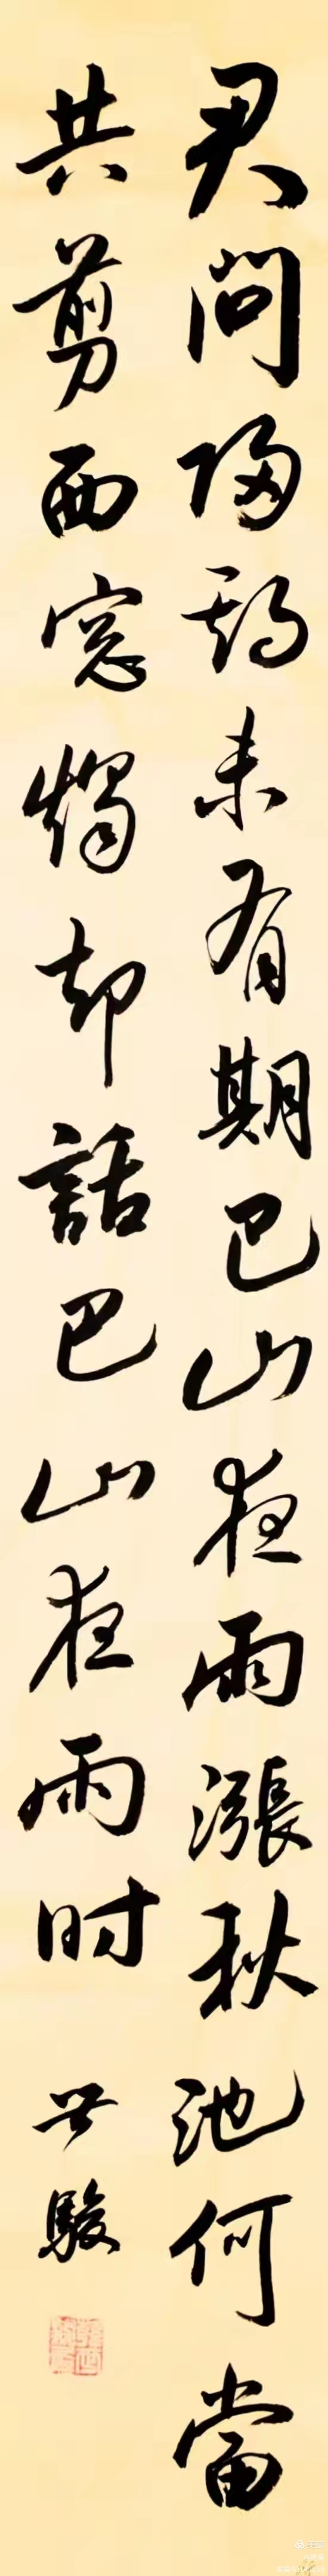 君問歸期未有期巴山夜雨漲秋池何當
共剪西窗燭却話巴山夜雨时 世駿